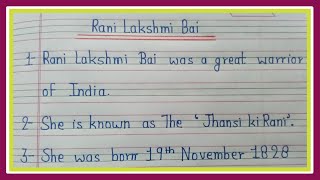 Rani Lakshmi Bai
1- Rani Lakshmi Bai was a great warrior
of India.
2- She is known as The 'Jhansi ki Rani'.
3- She was born 19th November 1828